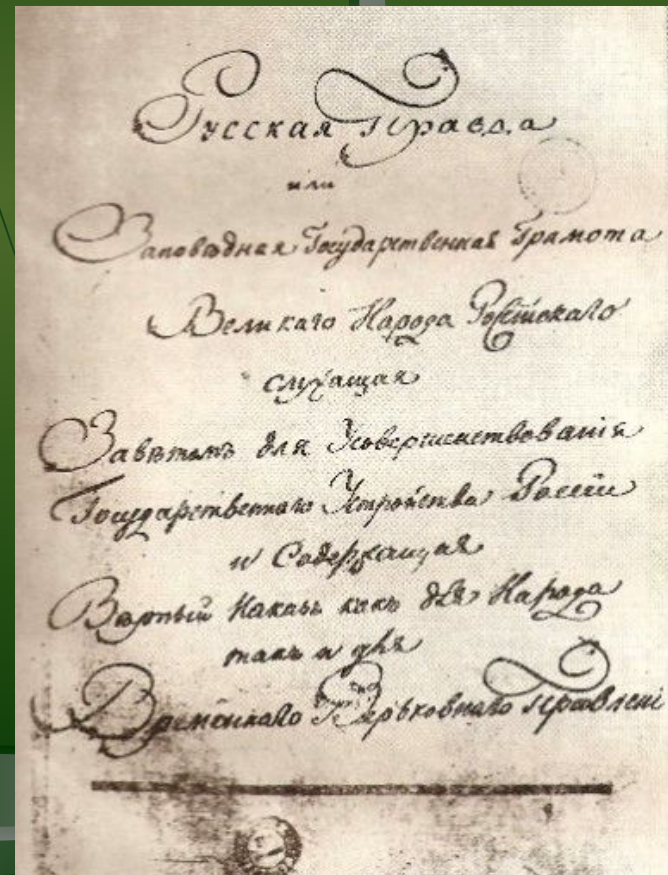 Русская Правда
или
Заповѣдная Государственная Грамота
Великаго Народа Россiйскаго
служащая
Завѣтомъ для Усовершенствованiя
Государственнаго Устройства Россiи
и Содержащая
Вѣрный Наказъ какъ для Народа
такъ и для
Временнаго Верьховнаго Правленi